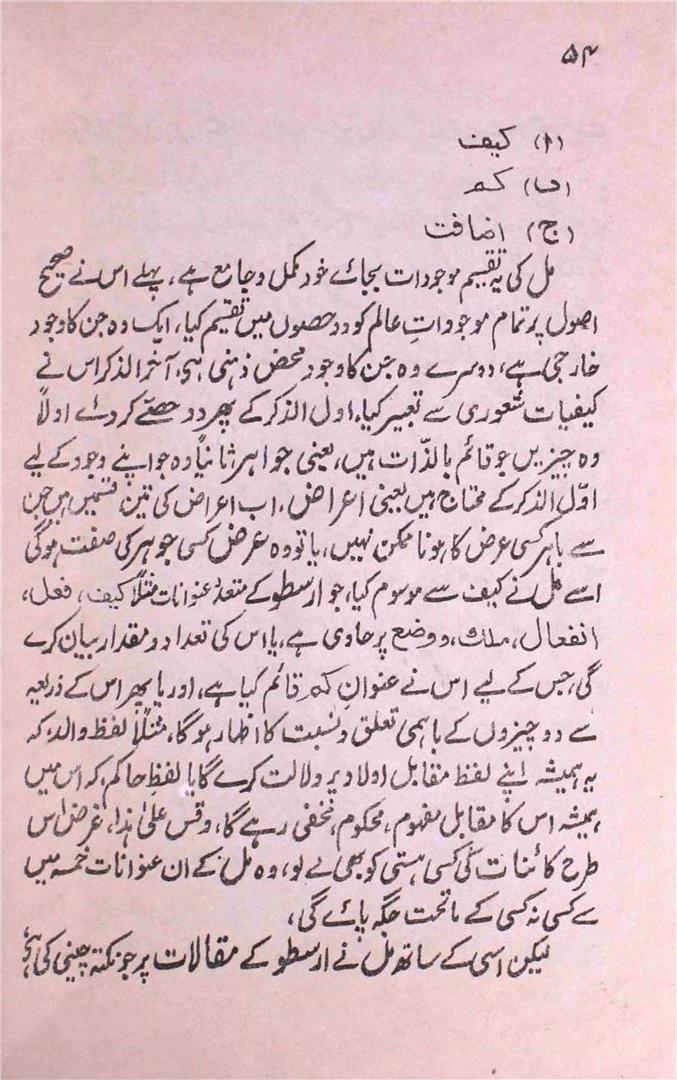 ۵۴
(ا) کیف
(ب) کم
(ج) اضافت
مل کی یہ تقسیم موجودات بجائے خود مکمل و جامع ہے، پہلے اس نے صحیح
اصول پر تمام موجوداتِ عالم کو دو حصوں میں تقسیم کیا، ایک وہ جن کا وجود
خارجی ہے، دوسرے وہ جن کا وجود محض ذہنی ہے، آخر الذکر اس نے
کیفیات شعوری سے تعبیر کیا، اول الذکر کے پھر دو حصّے کر دئے اولاً
وہ چیزیں جو قائم بالذّات ہیں، یعنی جواہر، ثانیاً وہ جو اپنے وجود کے لیے
اوّل الذکر کے محتاج ہیں یعنی اعراض، اب اعراض کی تین قسمیں ہیں جن
سے باہر کسی عرض کا ہونا ممکن نہیں، یا تو وہ عرض کسی جوہر کی صفت ہوگی
اسے مل نے کیف سے موسوم کیا، جو ارسطو کے متعدد عنوانات مثلاً کیف، فعل،
انفعال، ملک، و وضع پر حاوی ہے، یا اس کی تعداد و مقدار بیان کرے
گی، جس کے لیے اس نے عنوانِ کم قائم کیا ہے، اور یا پھر اس کے ذریعہ
سے دو چیزوں کے باہمی تعلق و نسبت کا اظہار ہوگا، مثلاً لفظ والد، کہ
یہ ہمیشہ اپنے لفظ مقابل اولاد پر دلالت کرے گا یا لفظ حاکم، کہ اس میں
ہمیشہ اس کا مقابل مفہوم، محکوم، مخفی رہے گا، وقس علیٰ ہذا، غرض اس
طرح کائنات کی کسی ہستی کو بھی لے لو، وہ مل کے ان عنوانات خمسہ میں
سے کسی نہ کسی کے ماتحت جگہ پائے گی،
لیکن اسی کے ساتھ مل نے ارسطو کے مقالات پر جو نکتہ چینی کی ہے،